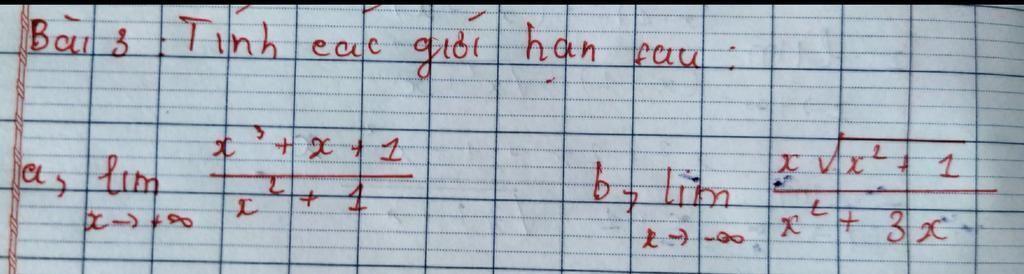 Bài 3 : Tính các giới hạn sau :
a, lim x→+∞ (x³ + x + 1)/(x² + 1) b, lim x→-∞ (x√(x² + 1))/(x² + 3x)